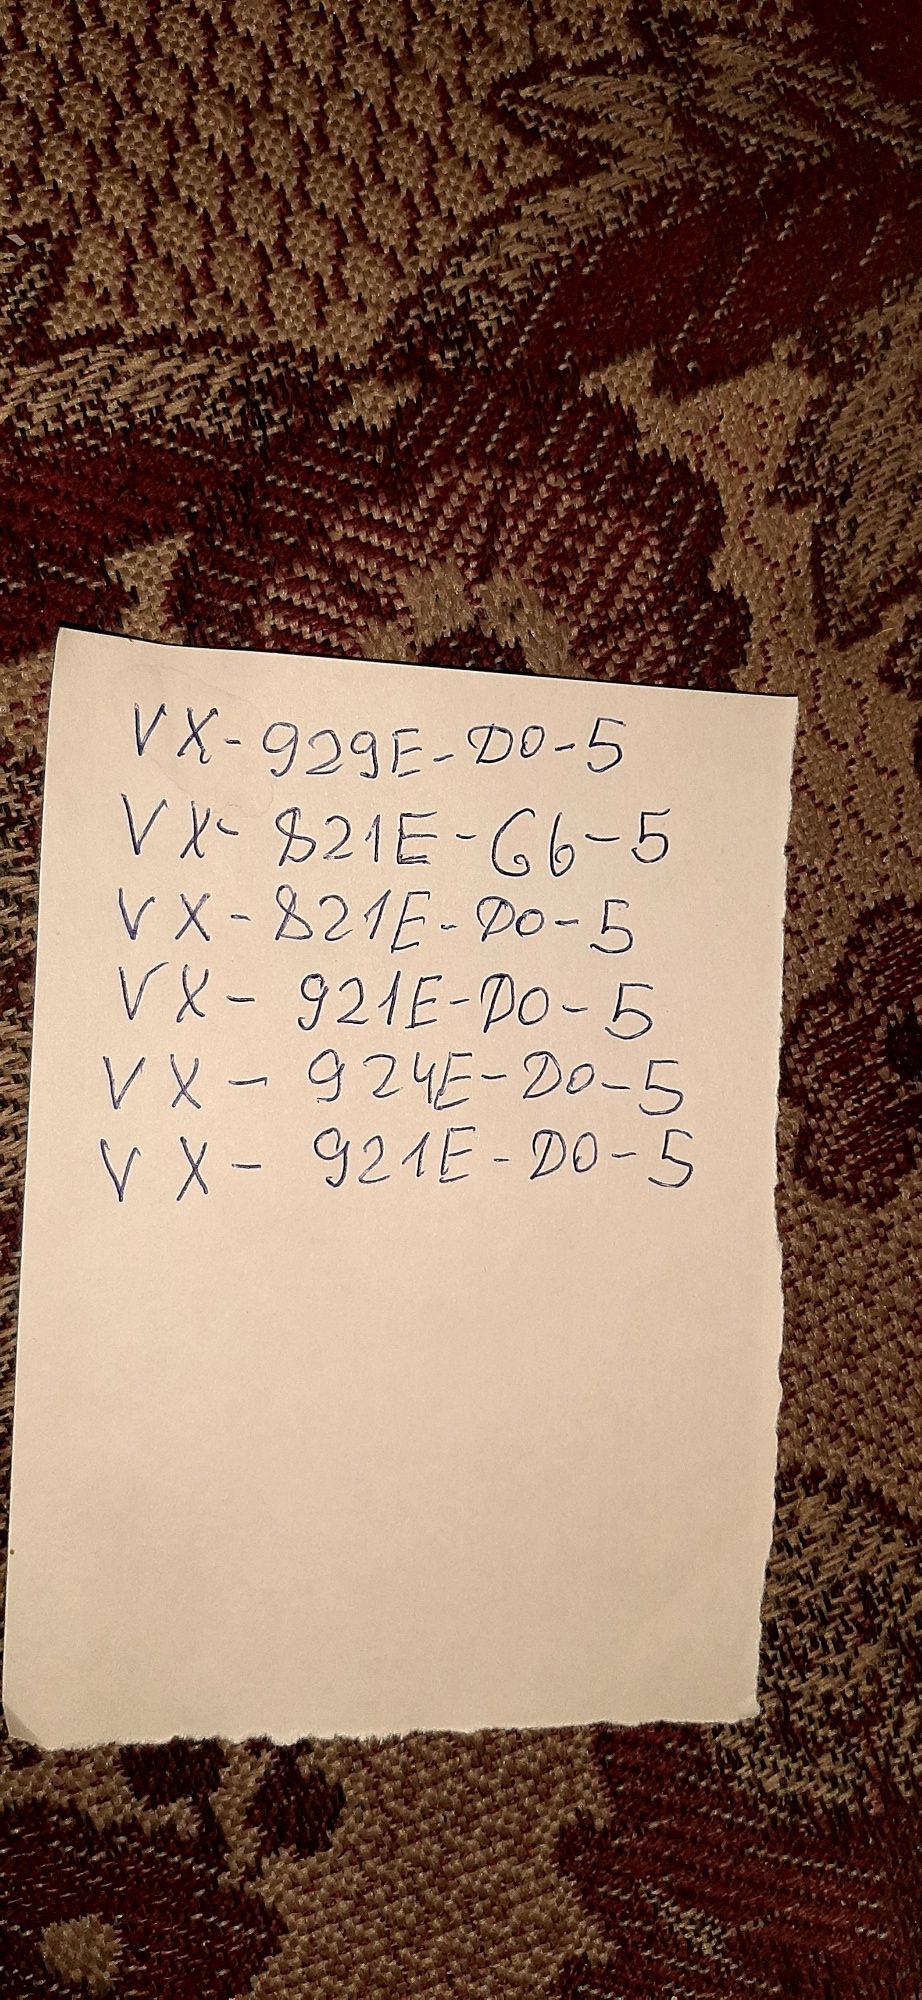 VX-929E-D0-5
VX-821E-G6-5
VX-821E-D0-5
VX-921E-D0-5
VX-924E-D0-5
VX-921E-D0-5